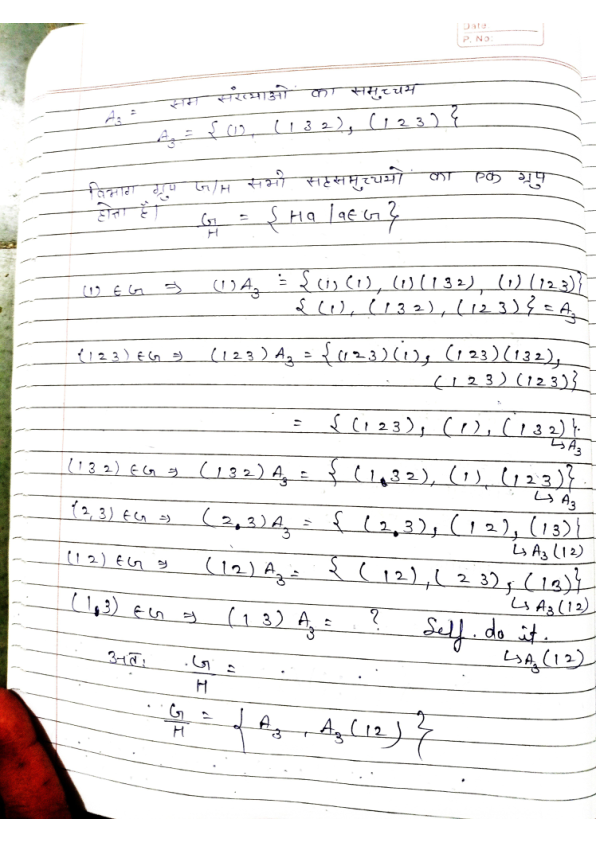 Date
P. No:
A₃ = सम संख्याओं का समुच्चय
A₃ = { (1), (1 3 2), (1 2 3) }
विभाग ग्रुप G/H सभी सहसमुच्चयों का एक ग्रुप
होता है।
G/H = { Ha | a ∈ G }
(1) ∈ G ⇒ (1) A₃ = { (1) (1), (1) (1 3 2), (1) (1 2 3) }
{ (1), (1 3 2), (1 2 3) } = A₃
(1 2 3) ∈ G ⇒ (1 2 3) A₃ = { (1 2 3) (1), (1 2 3) (1 3 2),
(1 2 3) (1 2 3) }
= { (1 2 3), (1), (1 3 2) }
↳ A₃
(1 3 2) ∈ G ⇒ (1 3 2) A₃ = { (1 3 2), (1), (1 2 3) }
↳ A₃
(2, 3) ∈ G ⇒ (2, 3) A₃ = { (2, 3), (1 2), (1 3) }
↳ A₃ (1 2)
(1 2) ∈ G ⇒ (1 2) A₃ = { (1 2), (2 3), (1 3) }
↳ A₃ (1 2)
(1, 3) ∈ G ⇒ (1 3) A₃ = ? Self. do it.
↳ A₃ (1 2)
अतः G/H =
G/H = { A₃, A₃ (1 2) }